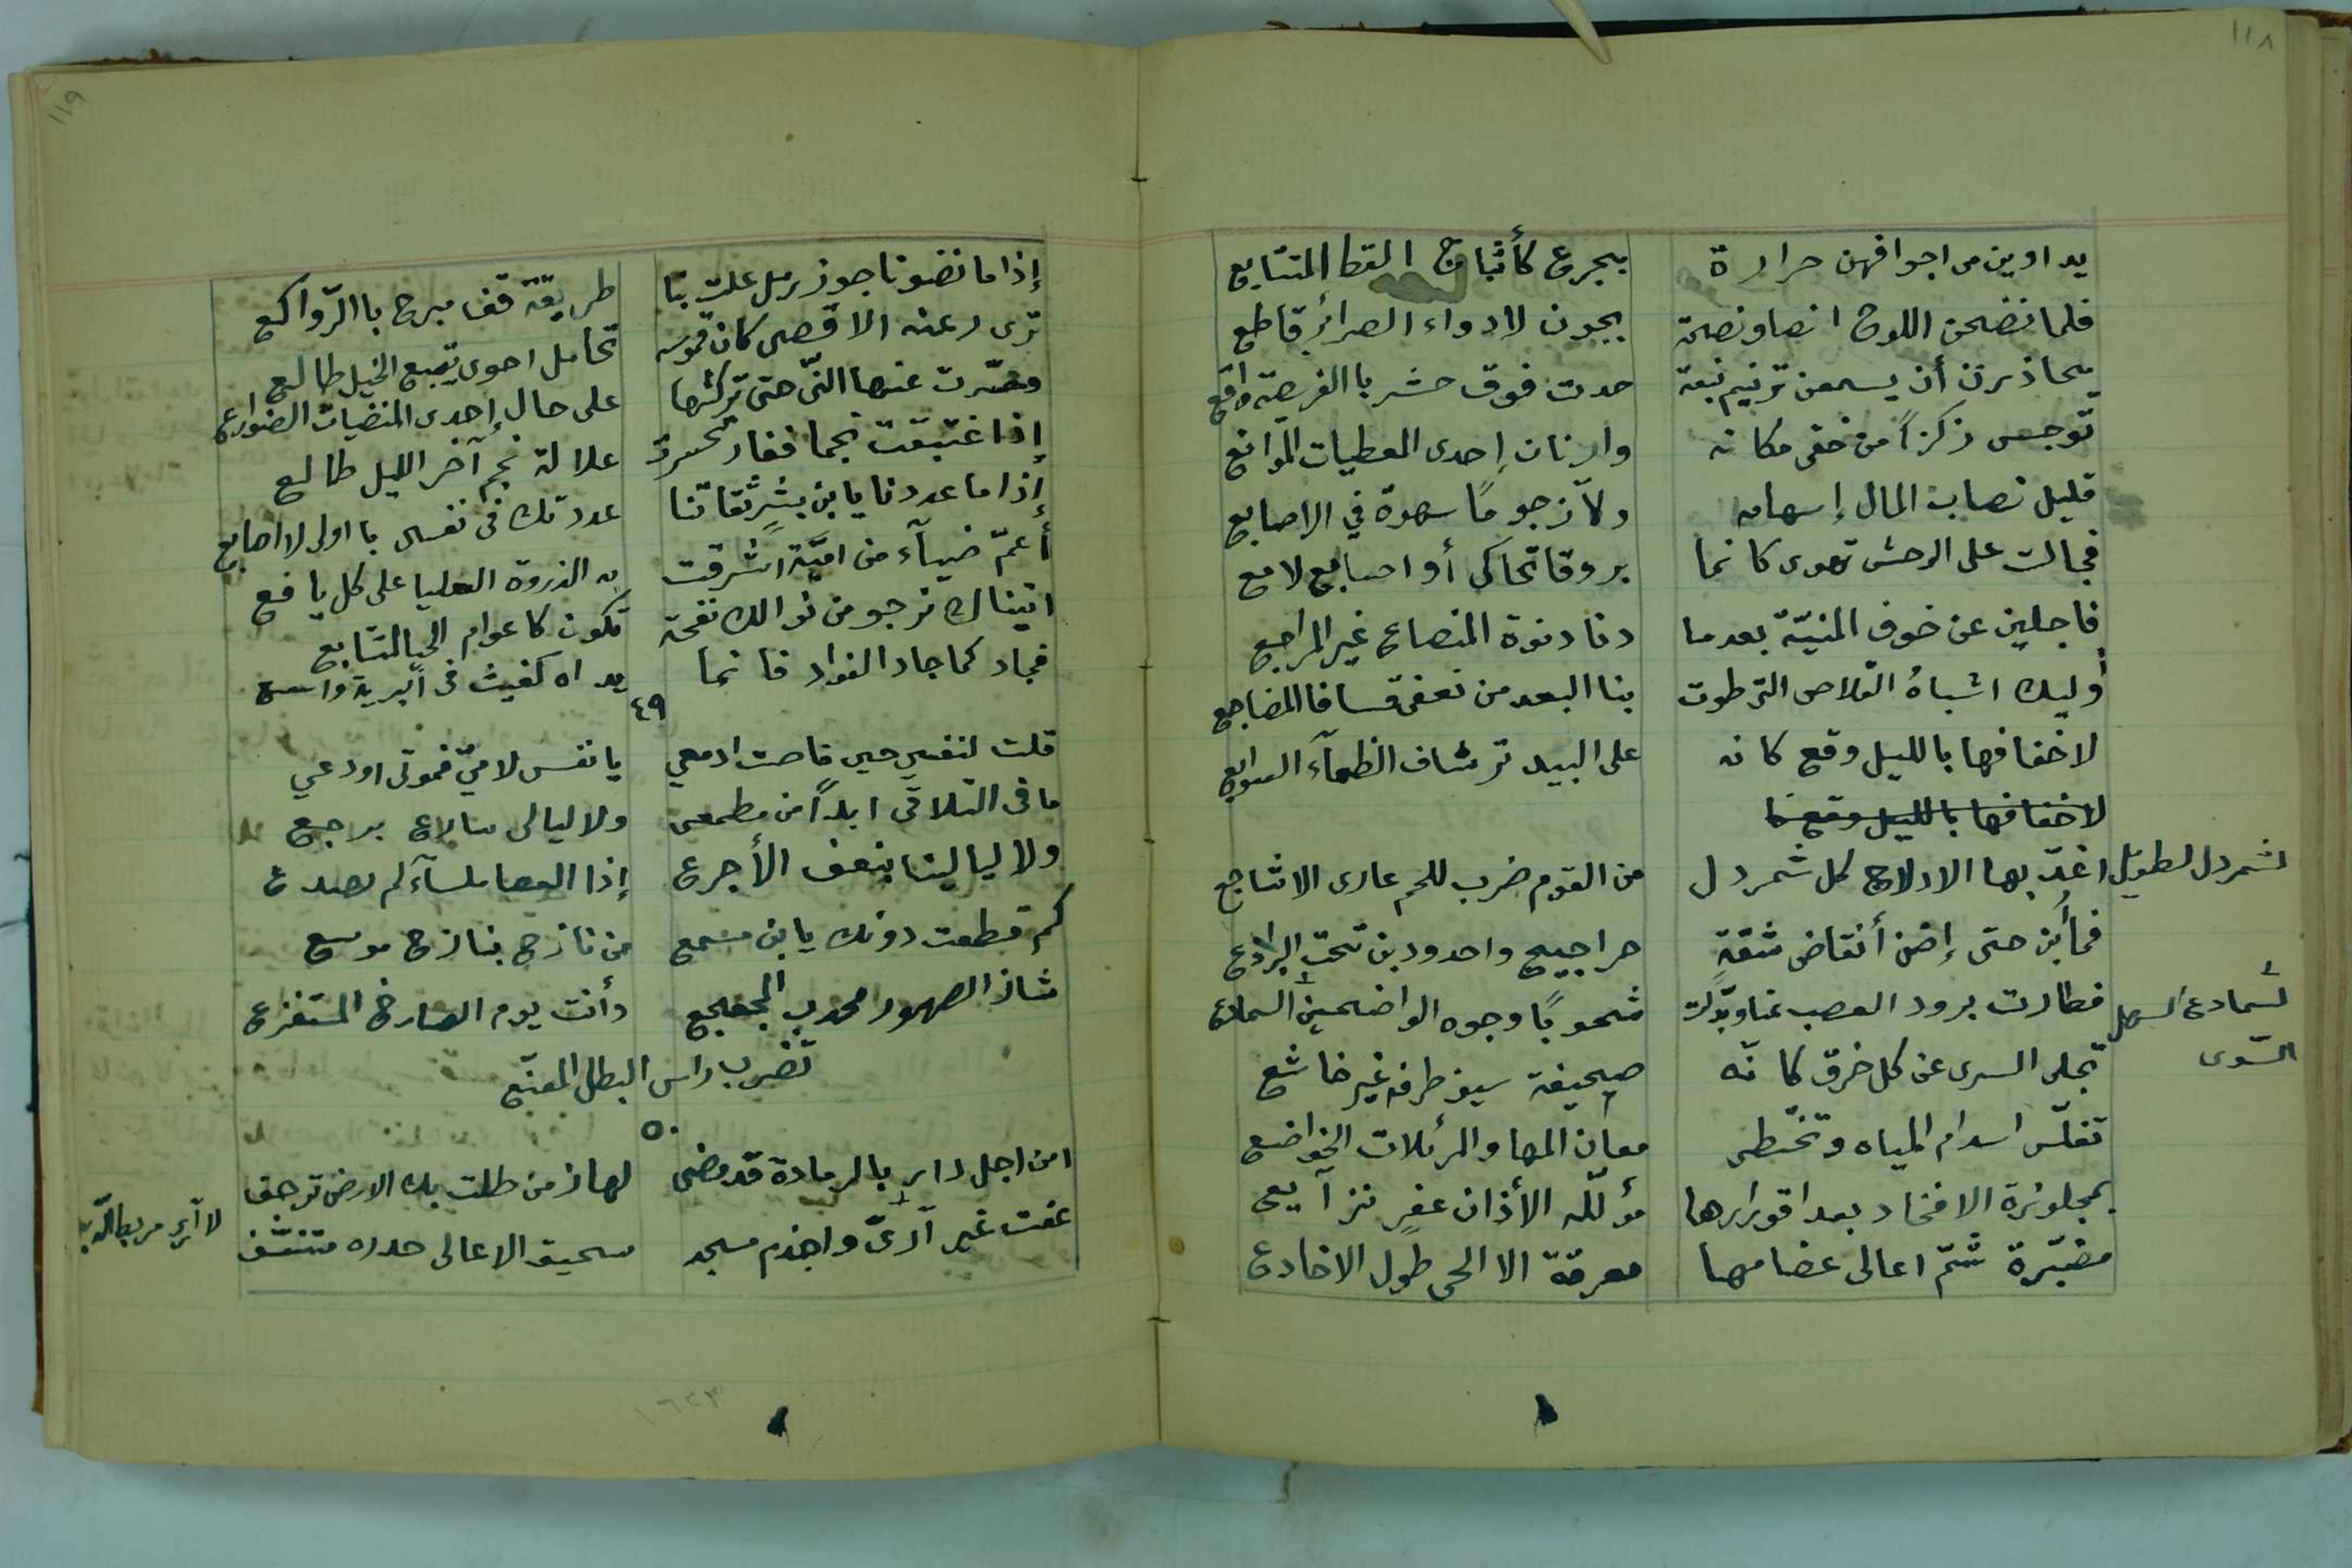 ١١٨
يداوين من اجوافهن حرارة بجرع كأثباج القطا المتتابع
فلما نضحن اللوح انصا ونصحة بجون لادواء الصرائر قاطع
يحاذرن أن يسمعن ترنيم نبعة حدت فوق حشر بالفريصة واقع
توجس ركزاً من خفى مكانه وارنان إحدى المعطيات الموانع
قليل نصاب المال إسهامه ولا زجوماً سهوة في الاصابع
فجالت على الوحش تهوى كانما بروقا تحاكى أو اصابع لامع
فاجلين عن خوف المنيّة بعدما دنا دنوة المنصاع غير المراجع
أوليك اشباهُ القلاص التى طوت بنا البعد من نعفى قسا فالمضاجع
لاخفافها بالليل وقع كانه على البيد ترشاف الظمآء السوابع
لاخفافها بالليل وقع كا
اغذّ بها الادلاج كل شمردل من القوم ضرب للحم عارى الاشاجع
الشمردل الطويل
فما أبن حتى إضن أنقاض شقةٍ حراجيج واحدودبن تحت البراذع
فطارت برود العصب عنا وبدّلت شحوباً وجوه الواضحين السمادع
السمادع السهل
السّوى
تجلى السرى عن كل خرق كانّه صحيفة سيف طرفه غير خاشع
تغلّس اسدام المياه وتختطى معان المها والمرئلات الخواضع
بمجلوزة الافخاد بعد اقورارها مؤللّه الأذان عفرٍ نزآيعى
مضبّرة شمّ اعالى عضامها معرقة الا الحى طول الاخادع
١١٩
إذا ما نضونا جوز رمل علت بنا طريقة قف مبرح باالرّواكع
ترى رعنه الاقصى كان قموسه تحامل احوى يتبع الخيل ظالع
وحسّرت عنها النّى حتى تركتها على حال إحدى المنضيات الضوارع
إذا غتبقت نجما فغار تسحرت علالة نجم آخر الليل طالع
إذا ما عددنا يا بن بشرٍ ثقاتنا عددتك فى نفسى باولى لااصابع
أعمّ ضيآء من اميّة اشرقت به الذروة العليا على كل يافع
اتيناك نرجو من نوالك نفحة تكون كاعوام الحيا المتتابع
فجاد كما جاد الفواد فانما يداه كغيث فى البرية واسع
٤٩
قلت لنفسى حين فاصت ادمعي يا نفس لامىّ فموتى اودعي
ما فى التلاقى ابداً من مطمعى ولا ليالى سالاع برجع
ولا ليالينا بنعف الأجرع إذا العصا ملسآء لم تصدع
كم قطعت دونك يا بن مسمع من نازح بنازح موسع
شاذ الصهور مجدب المجعجع وأنت يوم الصارخ المستفزع
تضرب راس البطل المقنّع
٥٠
امن اجل دارٍ بالرمادة قد مضى لها زمن ظلت بك الارض ترجف
عفت غير آرىّ واجذم مسجد سحيق الاعالى جدره متنسّف